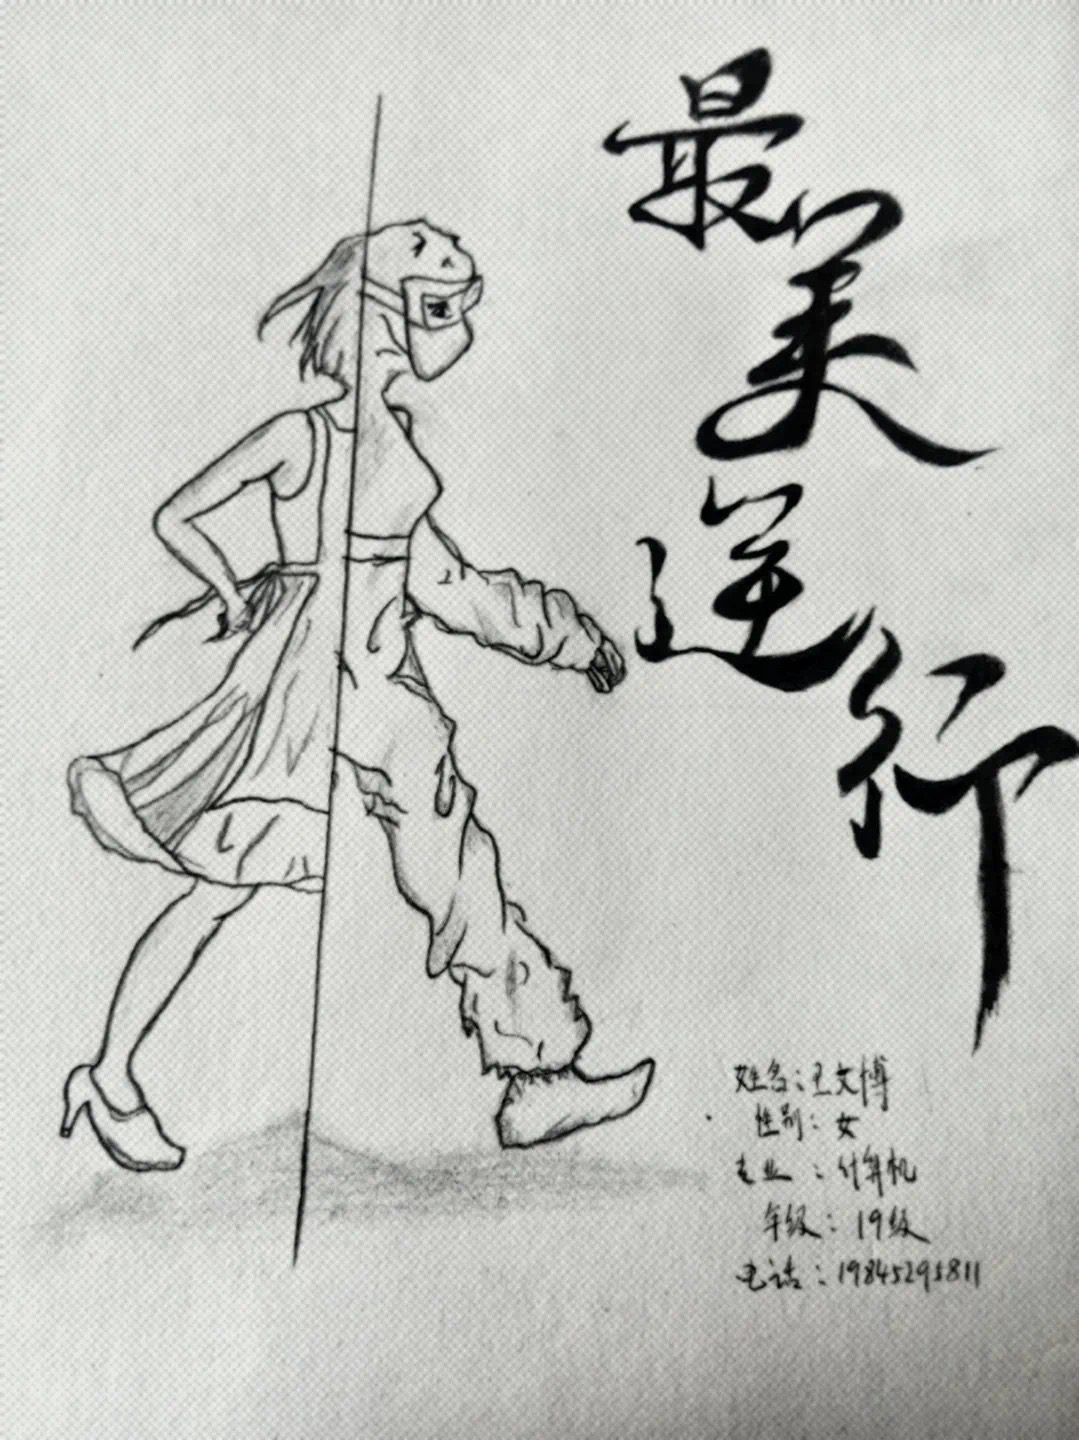 最美逆行
姓名：王文博
性别：女
专业：计算机
年级：19级
电话：19845295811